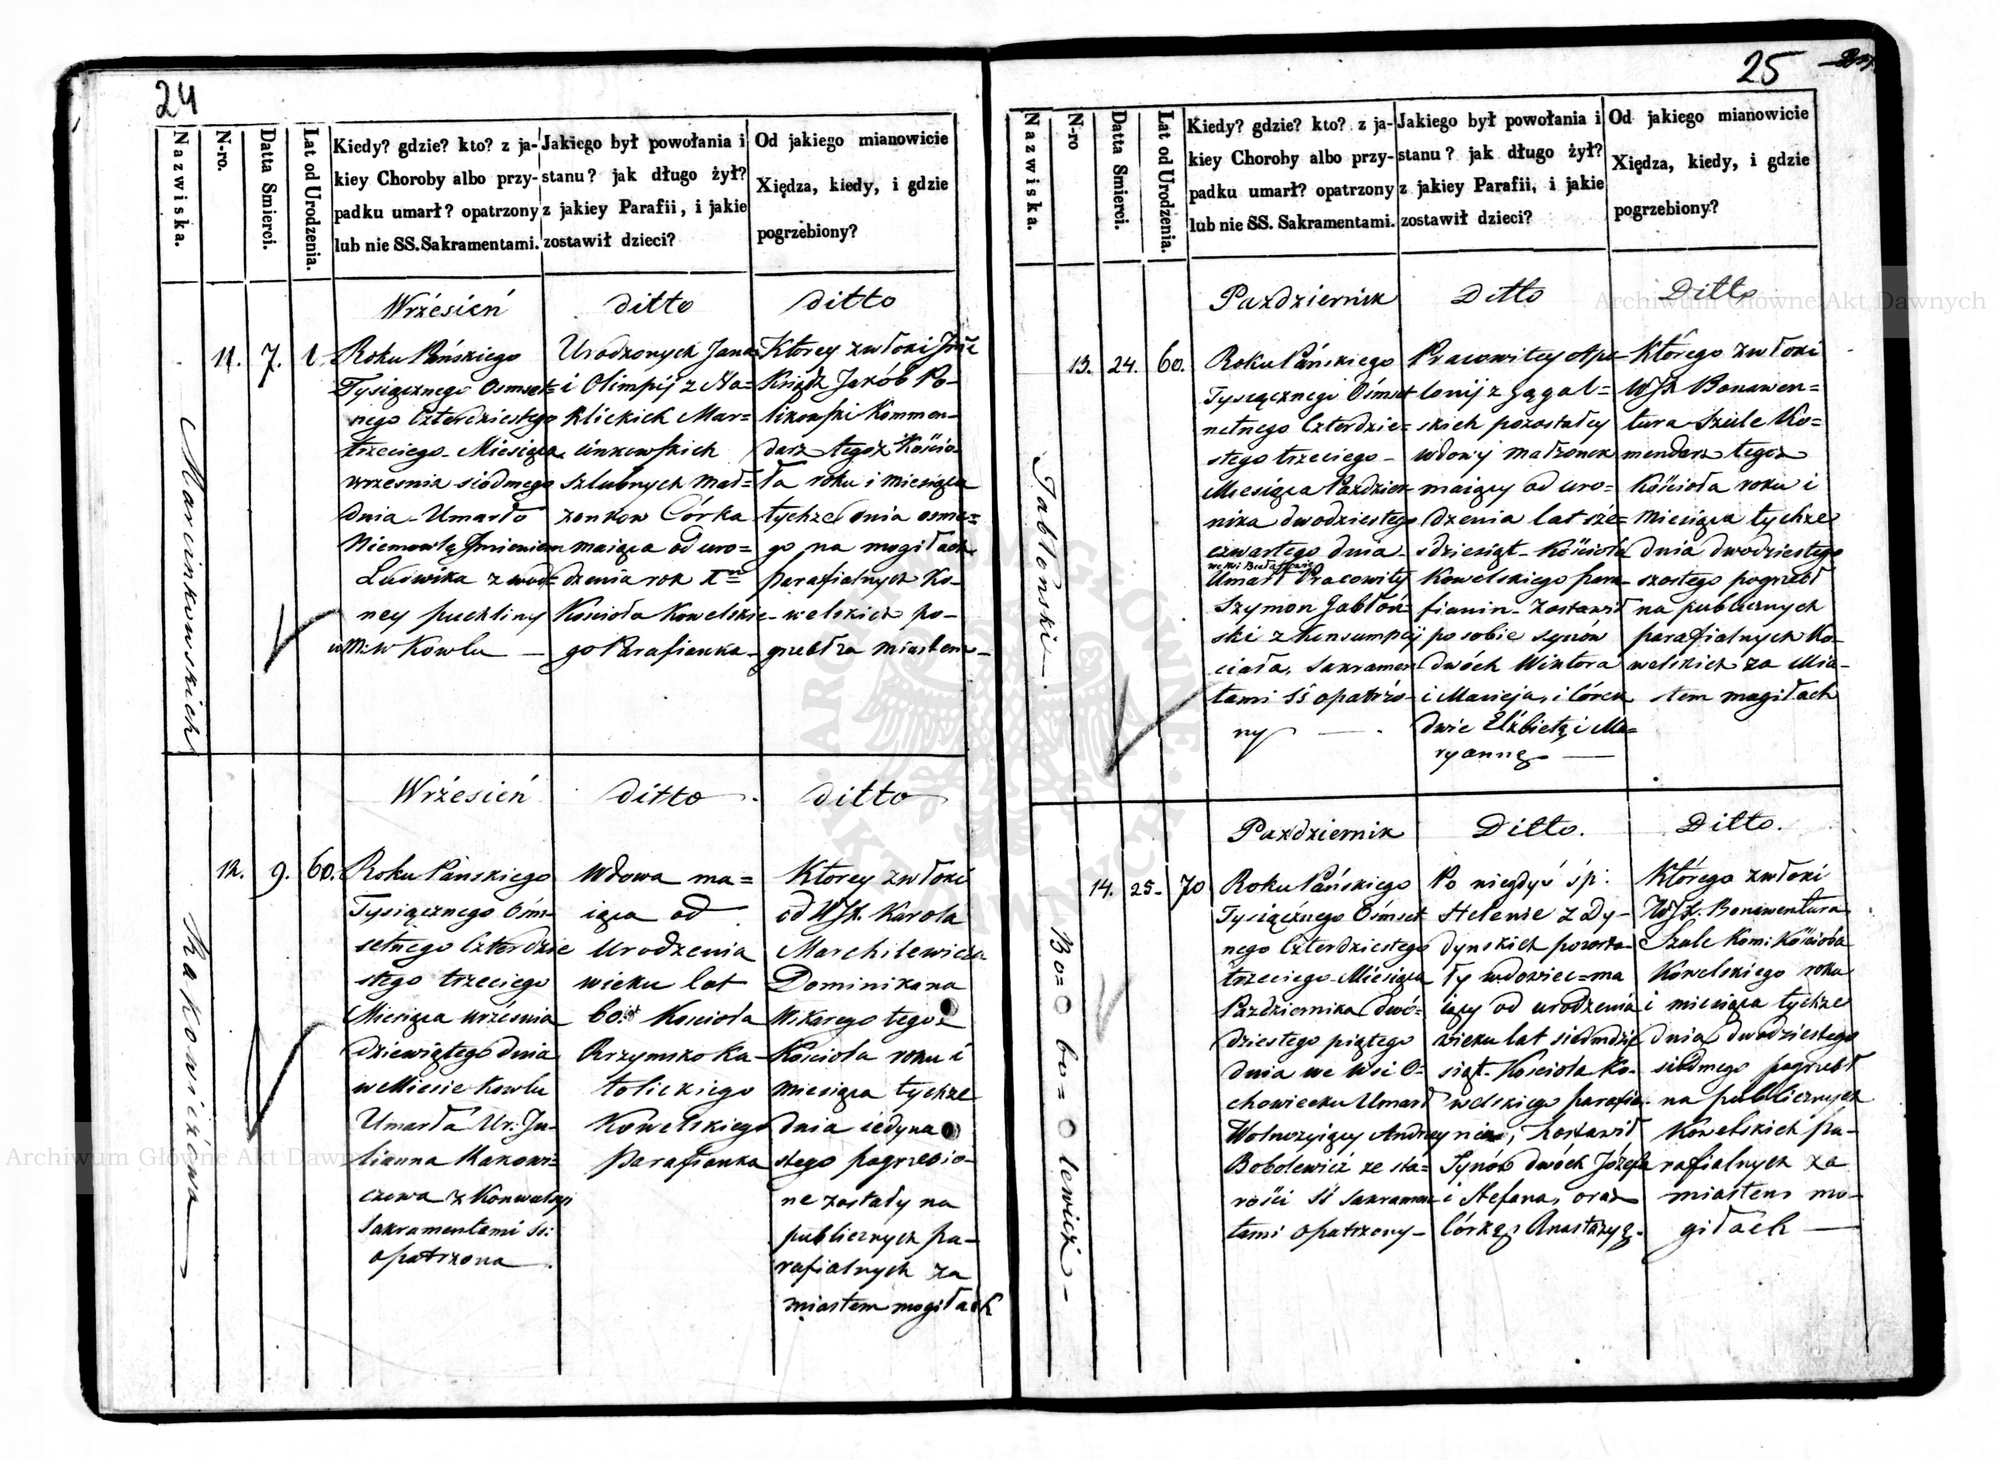 24
Nazwiska.
N-ro.
Datta Smierci.
Lat od Urodzenia.
Kiedy? gdzie? kto? z ja-
kiey Choroby albo przy-
padku umarł? opatrzony
lub nie SS. Sakramentami.
Jakiego był powołania i
stanu? jak długo żył?
z jakiey Parafii, i jakie
zostawił dzieci?
Od jakiego mianowicie
Xiędza, kiedy, i gdzie
pogrzebiony?
Marcinkowskich
11.
7.
1.
Wrześień
Roku Pańskiego
Tysiącznego Osmset=
nego Czterdziestego
trzeciego Miesiąca
wrzesnia siódmego
dnia Umarło
Niemowlę Jmieniem
Ludwika z wod=
ney puchliny
w M: w Kowlu —
ditto
Urodzonych Jana
i Olimpij z Na=
klickich Mar=
cinkowskich
szlubnych mał=
zonkow Córka
maiąca od uro=
dzenia rok
Kościoła Kowelskie-
go Parafianka -
ditto
Ktorey zwłoki
Ksiądz Jakób Po-
likowski Kommen-
darz tegoż Kościo-
ła roku i miesiąca
tychże dnia osme=
go na mogiłach
parafialnych Ko-
welskich po-
grzebł za miastem -
Makowiczowa
12.
9.
60.
Wrześień
Roku Pańskiego
Tysiącznego Ośm-
setnego Czterdzie
stego trzeciego
Miesiąca września
dziewiątego dnia
w Miescie Kowlu
Umarła Ur: Ju-
lianna Makowi=
czowa z Konwulsyi
Sakramentami SS:
opatrzona
ditto
Wdowa ma=
iąca od
Urodzenia
wieku lat
60. Kościoła
Rzymsko Ka-
tolickiego
Kowelskiego
Parafianka
ditto
Ktorey zwłoki
od WJX. Karola
Marchilewicza
Dominikana
Wikarego tegoż
Kościoła roku i
miesiąca tychże
dnia iedyna
stego pogrzebio-
ne zostały na
publicznych pa-
rafialnych za
miastem mogiłach
25
Nazwiska.
N-ro
Datta Smierci.
Lat od Urodzenia.
Kiedy? gdzie? kto? z ja-
kiey Choroby albo przy-
padku umarł? opatrzony
lub nie SS. Sakramentami.
Jakiego był powołania i
stanu? jak długo żył?
z jakiey Parafii, i jakie
zostawił dzieci?
Od jakiego mianowicie
Xiędza, kiedy, i gdzie
pogrzebiony?
Jabłoński
13.
24.
60.
Pazdziernik
Roku Pańskiego
Tysiącznego Ośmset
netnego Czterdzie=
stego trzeciego -
Miesiąca Paździer-
nika dwodziestego
czwartego dnia -
Umarł Pracowity
Szymon Jabłoń-
ski z Konsumpcij
ciała, Sakramen-
tami SS opatrzo-
ny —
Ditto
Pracowitey Apo-
lonij z Gągal=
skich pozostałey
wdowy małżonek
maiący od uro=
dzenia lat sze=
sdziesiąt - Kościoła
Kowelskiego para-
fianin - zostawił
po sobie synów
dwóch Wiktora
i Macieja, i córek
dwie Elżbietę i Ma=
ryannę —
Ditto
Którego zwłoki
WJX Bonawen=
tura Szule Ko=
mendarz tegoż
Kościoła roku i
Miesiąca tychże
dnia dwodziestego
szostego pogrzebł
na publicznych
parafialnych Ko-
welskich za Mia-
stem mogiłach
Bo=bo=lewicz -
14.
25-
70
Pazdziernik
Roku Pańskiego
Tysiącżnego Ośmset
nego Czterdziestego
trzeciego Miesiąca
Pazdziernika dwó=
dziestego piątego
dnia we Wsi O=
chowiecku Umarł
Wolnożyiący Andrey
Bobolewicż ze sta=
rości SS Sakramen
tami opatrzony -
Ditto.
Po niegdyś śp:
Helenie z Dy-
dynskich pozosta-
ły wdowiec=ma
iący od urodzenia
wieku lat siedmdzie
siąt. Kościoła Ko-
welskiego parafia-
nin, Zostawił
Synów dwóch Józefa
i Stefana, oraz
Córkę, Anastazyą.
Ditto.
Którego zwłoki
WJX. Bonawentura
Szule Kom: Kościoła
Kowelskiego roku
i miesiąca tychże
dnia dwodziestego
siódmego pogrzebł
na publicznych
Kowelskich pa-
rafialnych za
miastem mo-
giłach —
Archiwum Główne Akt Dawnych
Archiwum Główne Akt Dawnych
ARCHIWUM GŁÓWNE
AKT DAWNYCH